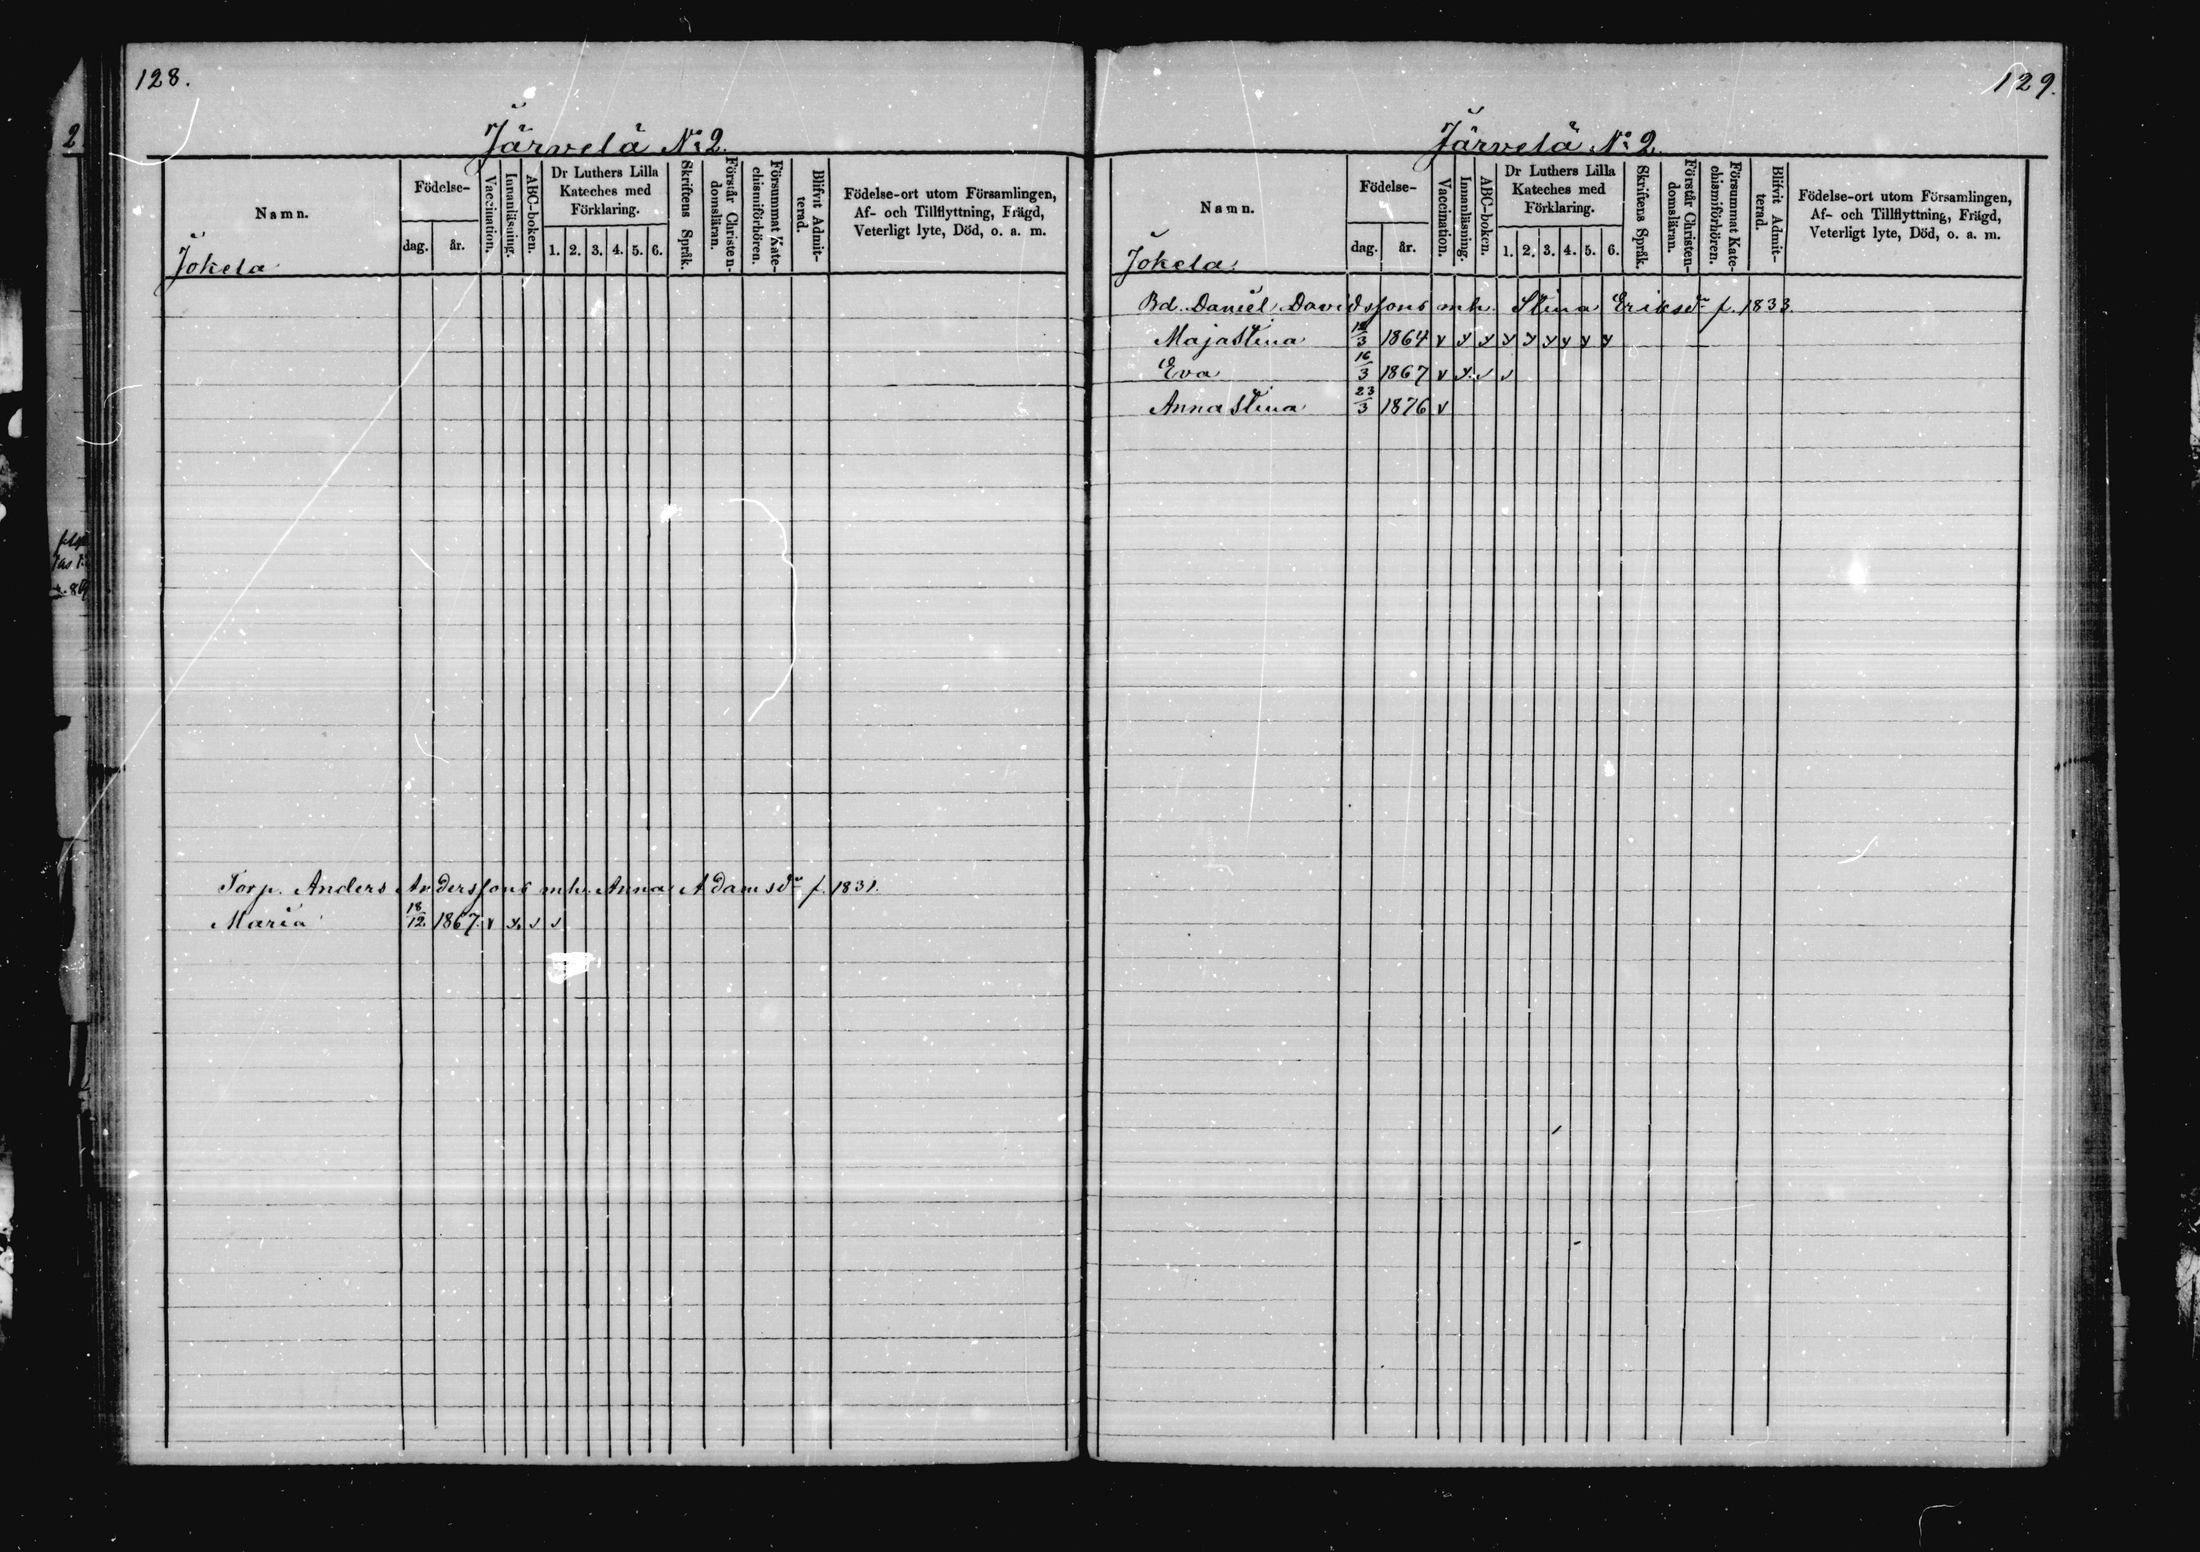 128.
Järvelä No 2.
Namn.
Födelse-
dag.
år.
Vaccination.
Innanläsning.
ABC-boken.
Dr Luthers Lilla
Kateches med
Förklaring.
1. 2. 3. 4. 5. 6.
Skriftens Språk.
Förstår Christen-
domsläran.
Försummat Kate-
chismiförhören.
Blifvit Admit-
terad.
Födelse-ort utom Församlingen,
Af- och Tillflyttning, Frägd,
Veterligt lyte, Död, o. a. m.
Jokela
Torp. Anders Anderssons mh. Anna Adamsdr f. 1831.
Maria 18/12 1867. v x v v
129.
Järvelä No 2.
Namn.
Födelse-
dag.
år.
Vaccination.
Innanläsning.
ABC-boken.
Dr Luthers Lilla
Kateches med
Förklaring.
1. 2. 3. 4. 5. 6.
Skriftens Språk.
Förstår Christen-
domsläran.
Försummat Kate-
chismiförhören.
Blifvit Admit-
terad.
Födelse-ort utom Församlingen,
Af- och Tillflyttning, Frägd,
Veterligt lyte, Död, o. a. m.
Jokela.
Bd. Daniel Davidssons mh. Stina Eriksdr f. 1833.
Maja Stina 1864 v x x x x x x x x
Eva 16/3 1867 v x v v
Anna Stina 23/3 1876 v